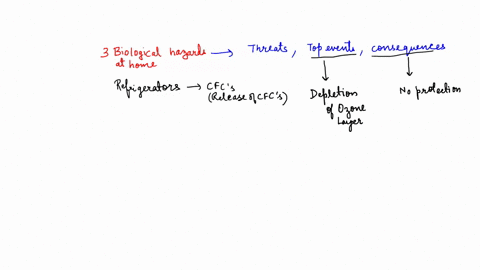 3 Biological hazards → Threats, Top events, consequences
at home
Refrigerators → CFC's
(Release of CFC's)
Depletion
of Ozone
Layer
No protection